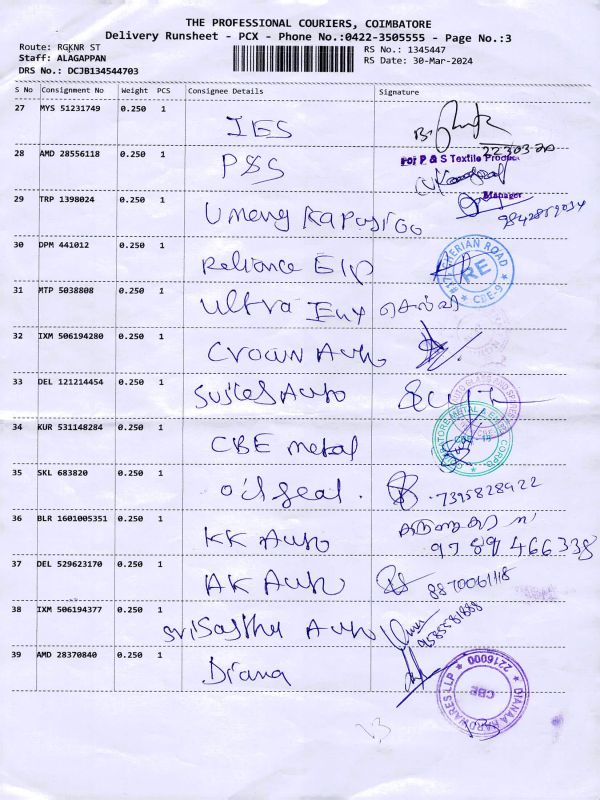 THE PROFESSIONAL COURIERS, COIMBATORE
Delivery Runsheet - PCX - Phone No.:0422-3505555 - Page No.:3
Route: RGKNR ST
RS No.: 1345447
Staff: ALAGAPPAN
RS Date: 30-Mar-2024
DRS No.: DCJB134544703
S No Consignment No Weight PCS Consignee Details Signature
27 MYS 51231749 0.250 1
IES
28 AMD 28556118 0.250 1
P&S
For P & S Textile
Manager
29 TRP 1398024 0.250 1
9842859034
30 DPM 441012 0.250 1
Reliance Elp
CHERIAN ROAD
RE
CBE-9
31 MTP 5038808 0.250 1
Ultra செல்வி
32 IXM 506194280 0.250 1
Crown Auto
33 DEL 121214454 0.250 1
Auto
34 KUR 531148284 0.250 1
CBE metal
35 SKL 683820 0.250 1
oilseal. 7395828922
36 BLR 1601005351 0.250 1
KK Auto
9789466338
37 DEL 529623170 0.250 1
AK Auto 8870061118
38 IXM 506194377 0.250 1
Sri Sastha Auto
39 AMD 28370840 0.250 1
Diana
DIANAA HARDWARES LLP
CBE
2216000